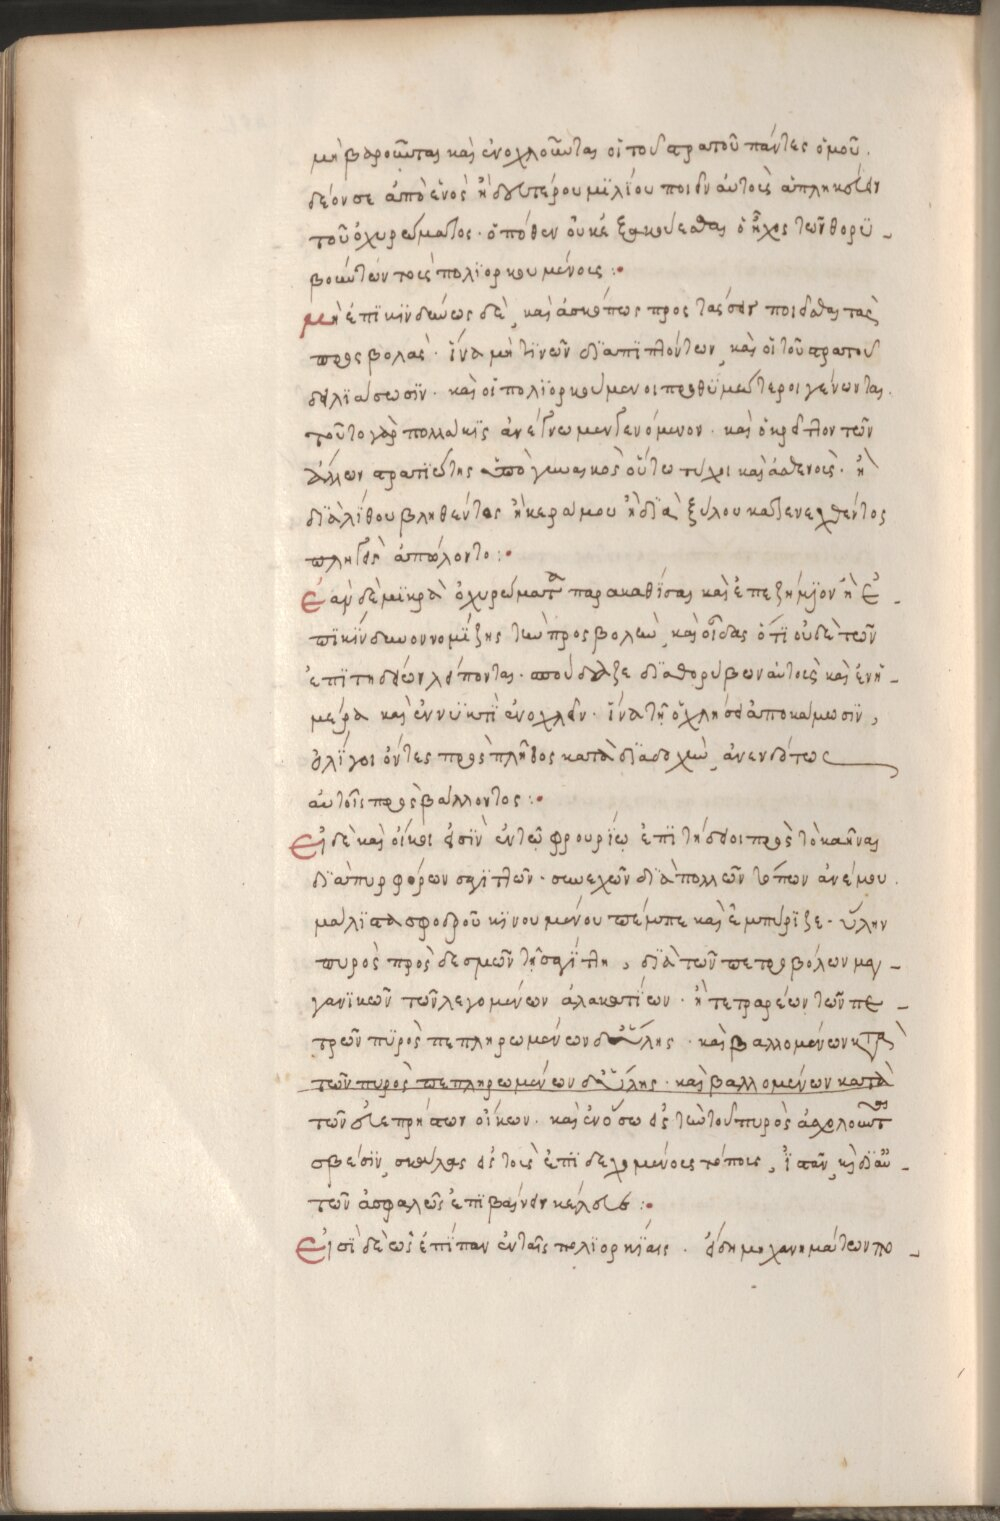 μὴ βαροῦνται καὶ ἐνοχλοῦνται οἱ τοῦ στρατοῦ πάντες ὁμοῦ.
δέον σε ἀπὸ ἑνὸς ἢ δευτέρου μϊλίου ποιεῖν αὐτοῖς ἄπληκτον
τοῦ ὀχυρώματος. ὁπόθεν οὐκ ἐξακούεσθαι ὁ ἦχος τῶν θορϋ-
βούντων τοῖς πολϊορκουμένοις:
Μὴ ἐπϊκϊνδύνως δὲ, καὶ ἀσκόπως πρὸς ταύτην ποιεῖσθαι τὰς
προσβολάς. ἵνα μὴ τϊνῶν δϊαπϊπτόντων, καὶ οἱ τοῦ στρατοῦ
δειλϊάσωσϊν. καὶ οἱ πολϊορκούμενοι προθϋμώτεροι γένωνται.
τοῦτο γὰρ πολλάκϊς ἀνέγνωμεν γενόμενον. καὶ ὁ κρείττον τῶν
ἄλλων στρατϊώτης ὑπὸ γυναικὸς οὕτω τύχοι καὶ ἀσθενοῖς. ἢ
δϊὰ λίθου βληθέντες ἢ κεράμου ἢ δϊὰ ξύλου κατενεχθέντος
πληγεὶς ἀπώλοντο:
Ἐὰν δὲ μϊκρὰ ὀχυρώματα παρακαθίσαι καὶ ἐπεζήμϊον ἢ ἐ-
πϊκίνδυνον νομίζης τὴν προσβολὴν, καὶ οἶδας ὅτϊ οὐδὲ τῶν
ἐπϊτηδείων λείπονται. σπούδαξε δϊαθορύβων αὐτοῖς καὶ ἐν ἡ-
μέρα καὶ ἐν νϋκτὶ ἐνοχλεῖν. ἵνα τῇ ὀχλήσει ἀποκάμωσϊν,
ὀλίγοι ὄντες πρὸς πλῆθος κατὰ δϊαδοχὴν, ἀνενδότως
αὐτοῖς προσβάλλοντος:
Εἰ δὲ καὶ οἶκοι εἰσῒν ἐν τῷ φρουρίῳ ἐπϊτήδειοι πρὸς τὸ καῆναι
δϊὰ πυρφόρων σαγϊττῶν. συνεχῶν δϊὰ πολλῶν τόπων ἀνέμου.
μάλϊστα σφοδροῦ κϊνουμένου πέμπε καὶ ἐμπύρϊζε. ὕλην
πυρὸς προσδεσμῶν τῇ σαγίττη, δϊὰ τῶν πετροβόλων μαγ-
γανϊκῶν τῶν λεγομένων ἀλακατίων. ἢ τετραρέων τῶν πε-
τρῶν πϋρὸς πεπληρωμένων ὕλης. καὶ βαλλομένων κατὰ
τῶν πυρὸς πεπληρωμένων ὕλης. καὶ βαλλομένων κατὰ
τῶν εὐπρήστων οἴκων. καὶ ἐν ὅσω εἰς τὴν τοῦ πυρὸς ἀσχολοῦνται
σβέσϊν, σκάλας εἰς τοὺς ἐπϊδεχομένοις τόποις, ἱστᾶν, καὶ δϊ' αὐ-
τῶν ἀσφαλῶς ἐπϊβαίνειν κέλευε:
Εἰσὶ δὲ ὡς ἐπίπαν ἐν ταῖς πολϊορκίαις. εἴδη μηχανημάτων πο-